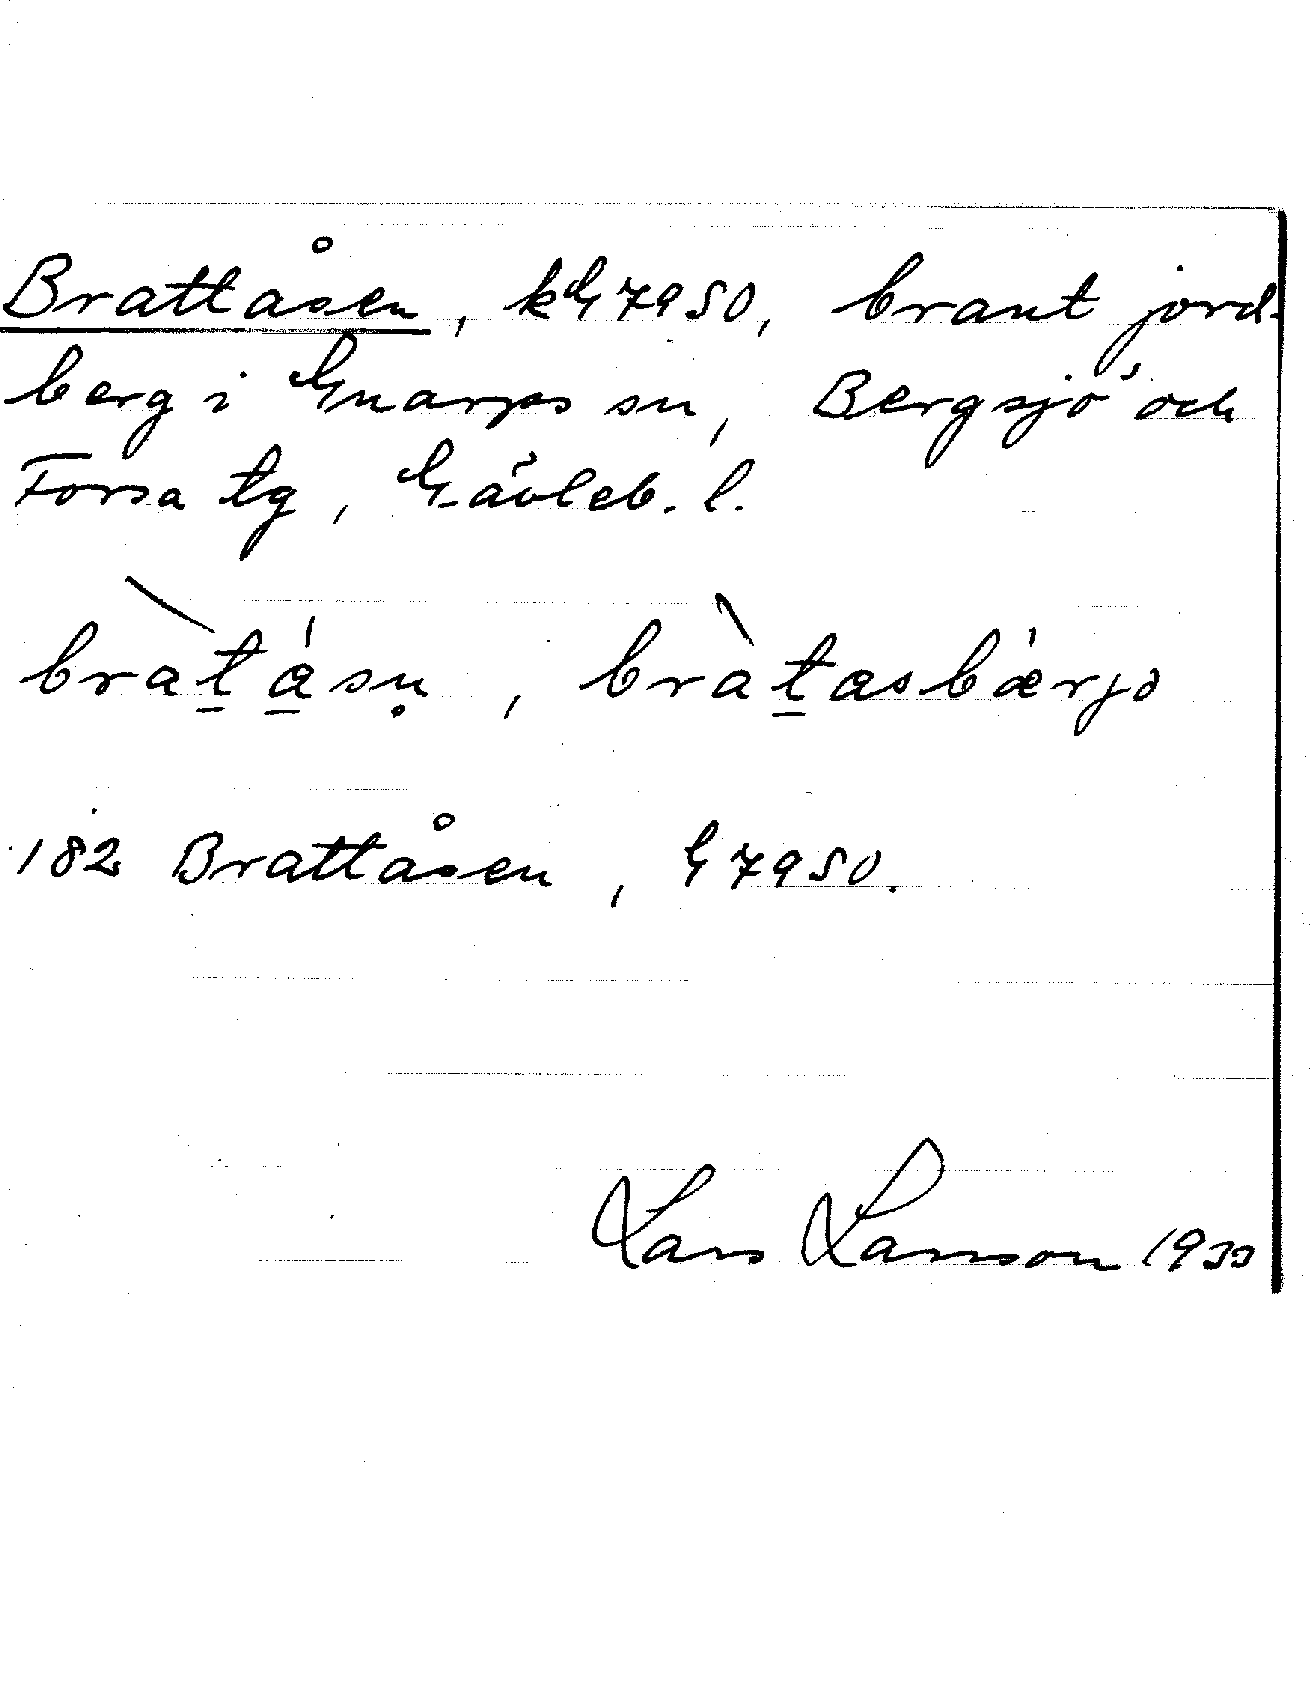 Brattåsen, kG7950, brant jord-
berg i Gnarps sn, Bergsjö och
Forsa tg, Gävleb. l.
bràt̲á̲sṇ, bràt̲asbærjə
182 Brattåsen, G7950.
Lars Larsson 1933